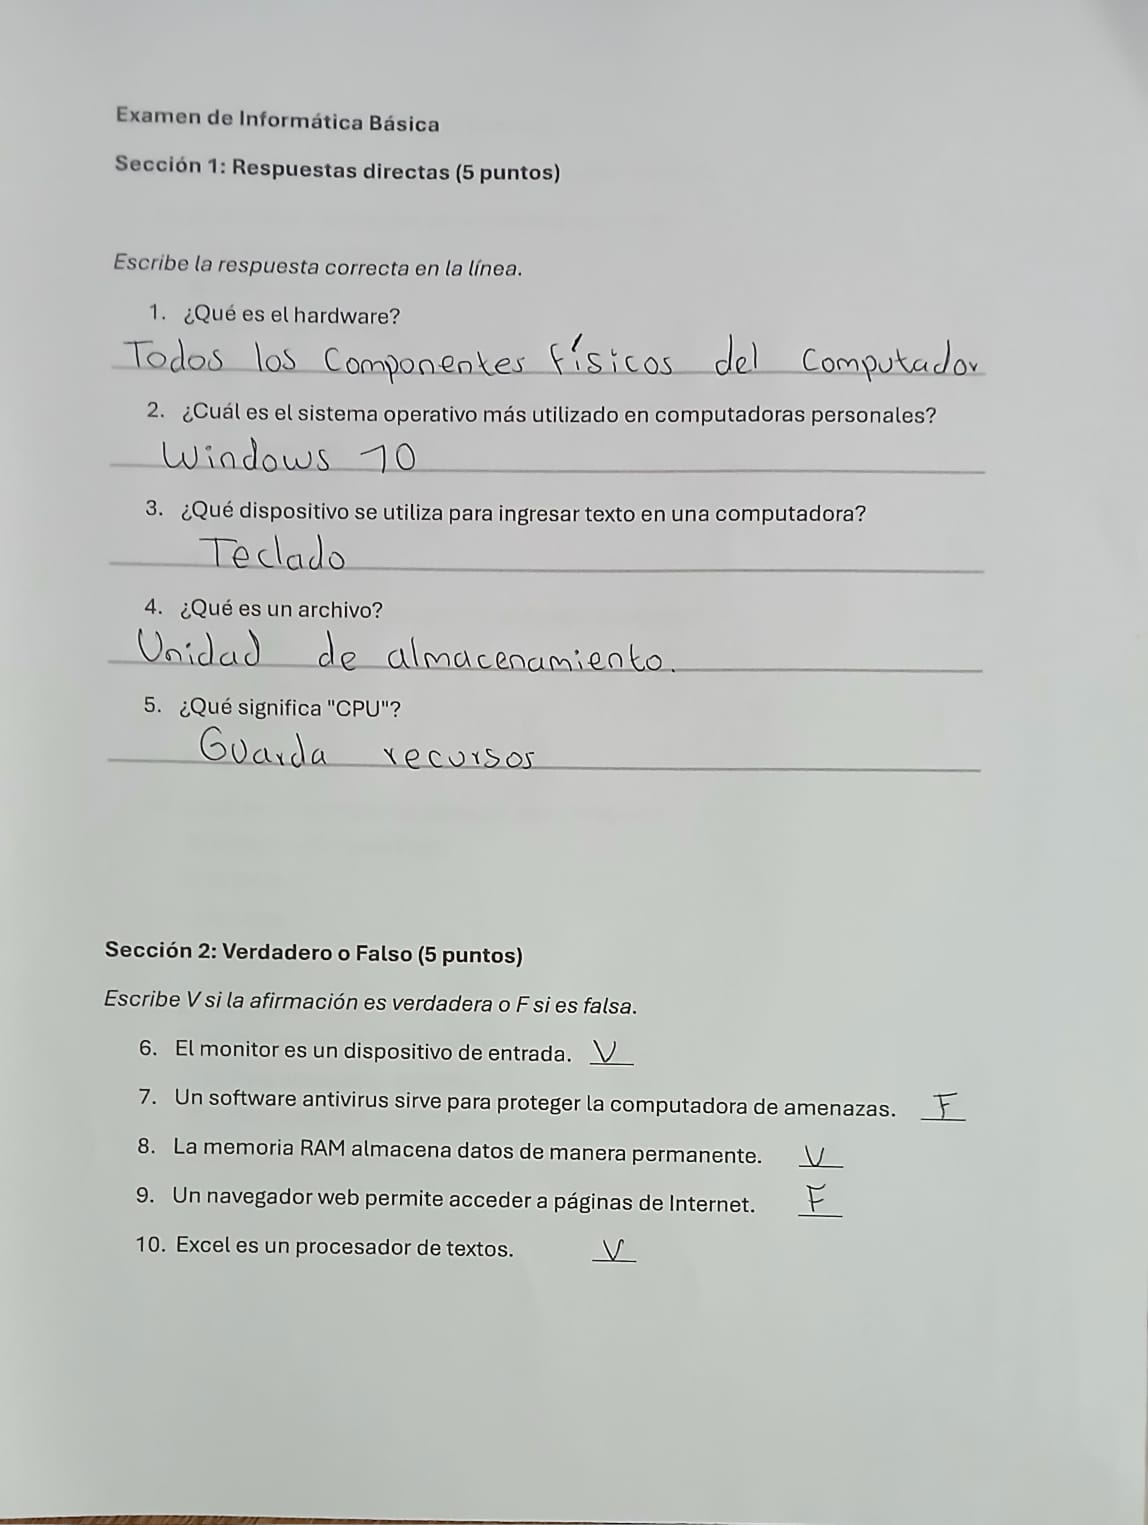 Examen de Informática Básica
Sección 1: Respuestas directas (5 puntos)
Escribe la respuesta correcta en la línea.
1. ¿Qué es el hardware?
Todos los componentes físicos del computador
2. ¿Cuál es el sistema operativo más utilizado en computadoras personales?
Windows 10
3. ¿Qué dispositivo se utiliza para ingresar texto en una computadora?
Teclado
4. ¿Qué es un archivo?
Unidad de almacenamiento.
5. ¿Qué significa "CPU"?
Guarda recursos
Sección 2: Verdadero o Falso (5 puntos)
Escribe V si la afirmación es verdadera o F si es falsa.
6. El monitor es un dispositivo de entrada. V
7. Un software antivirus sirve para proteger la computadora de amenazas. F
8. La memoria RAM almacena datos de manera permanente. V
9. Un navegador web permite acceder a páginas de Internet. F
10. Excel es un procesador de textos. V